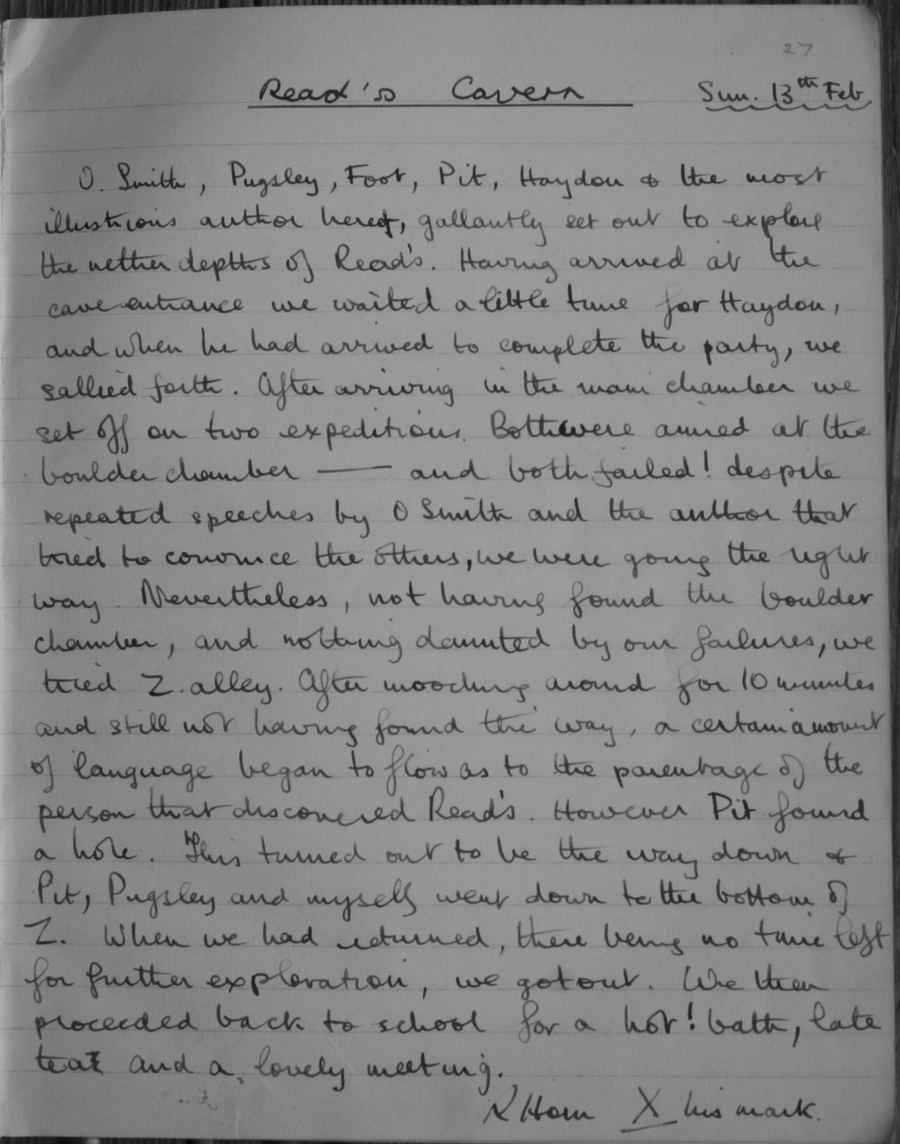 27
Read's Cavern Sun. 13th Feb
O. Smith, Pugsley, Foot, Pit, Haydon & the most
illustrious author hereof, gallantly set out to explore
the nether depths of Read's. Having arrived at the
cave entrance we waited a little time for Haydon,
and when he had arrived to complete the party, we
sallied forth. After arriving in the main chamber we
set off on two expeditions. Both were aimed at the
boulder chamber — and both failed! despite
repeated speeches by O Smith and the author that
tried to convince the others, we were going the right
way. Nevertheless, not having found the boulder
chamber, and nothing daunted by our failures, we
tried Z. alley. After mooching around for 10 minutes
and still not having found the way, a certain amount
of language began to flow as to the parentage of the
person that discovered Read's. However Pit found
a hole. This turned out to be the way down &
Pit, Pugsley and myself went down to the bottom of
Z. When we had returned, there being no time left
for further exploration, we got out. We then
proceeded back to school for a hot! bath, late
tea and a lovely meeting.
R Horn X his mark.